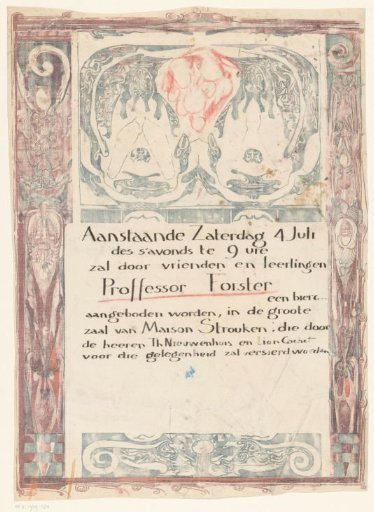 Aanstaande Zaterdag 4 Juli
des s'avonds te 9 ure
zal door vrienden en leerlingen
Proffessor Forster
een bier...
aangeboden worden, in de groote
zaal van Maison Strouken: die door
de heeren Th. Nieuwenhuis en Lion Cachet
voor die gelegenheid zal versierd worden